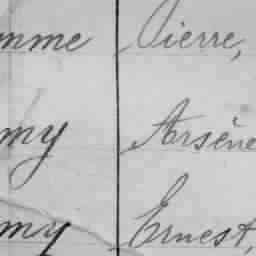 mme Pierre,
my Arsène
my Ernest,